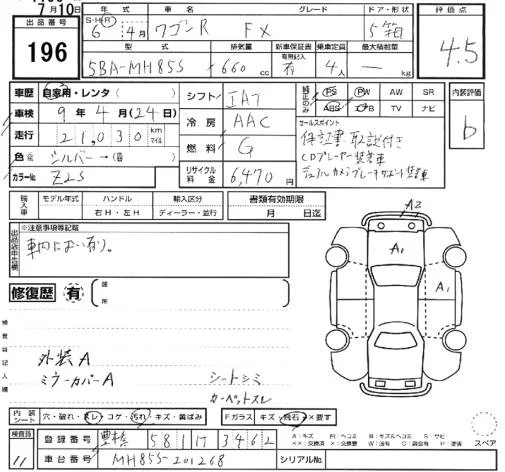 7月10日
年式 車名 グレード ドア・形状 評価点
S・H・R 6年 4月 ワゴンR FX 5箱
出品番号
196
型式 排気量 新車保証書 乗車定員 最大積載量
4.5
5BA-MH85S 660cc 有 4人 ― kg
車歴 自家用・レンタ シフト IAT 純正のみ PS PW AW SR 内装評価
車検 9年 4月(24日) ABS エアB TV ナビ
冷房 AAC セールスポイント b
走行 21,030 km マイル 保証書取説付き
燃料 G CDプレーヤー装着車
色 シルバー→ デュアルカメラブレーキサポート装着車
カラーNo Z2S リサイクル料金 6,470円
輸入車 モデル年式 ハンドル 輸入区分 書類有効期限
右H・左H ディーラー・並行 月 日迄
※注意事項等記載
車内におい有り。
A2
A1
A1
修復歴 有 箇所
検査員記入欄
外装A
ミラーカバーA シートシミ
カーペットスレ
内装シート 穴・破れ・スレ・コゲ・汚れ・キズ・黄ばみ Fガラス キズ・飛石・×要す
スペア
検査員 11 登録番号 豊橋 581 け 3462
車台番号 MH85S-201268 シリアルNo